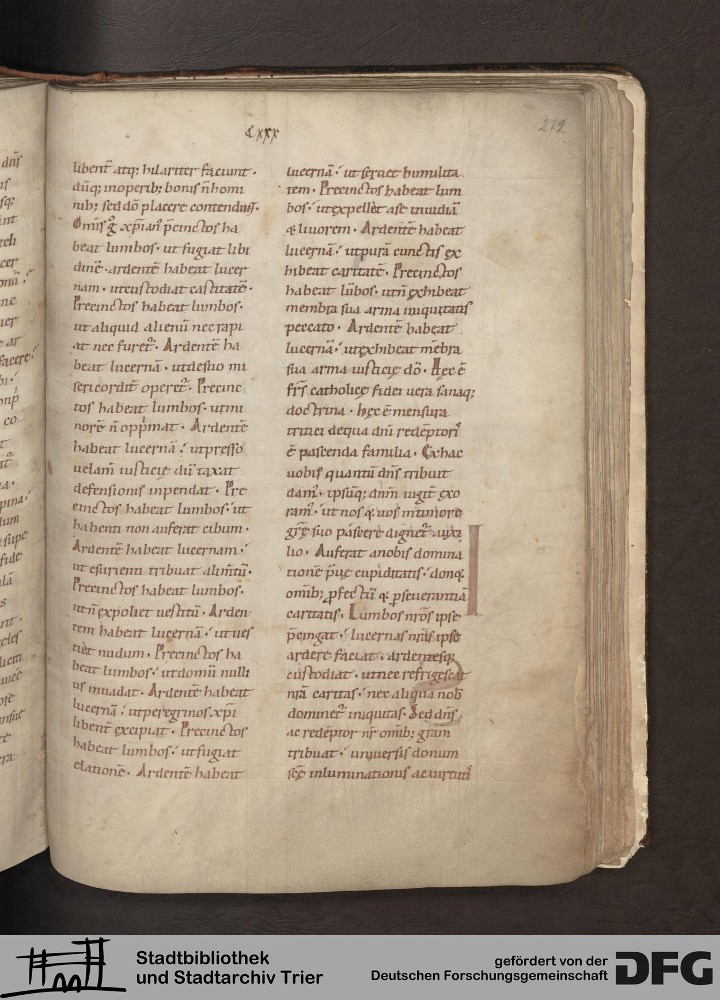 Cxxx
272
libent̄ atq; hilariter faciunt·
dūq; inoperib; bonis n̄ homi
nib; sed dō placere contendunt·
Omīs g̊ xp̄ianꝰ p̄cinctos ha
beat lumbos· ut fugiat libi
dinē· ardentē habeat lucer
nam· ut custodiat castitatē·
Precinctos habeat lumbos·
ut aliquid alienū nec rapi
at nec furet᷑· Ardentē ha
beat lucernā· ut desuo mi
sericordit̄ operet᷑· Precinc
tos habeat lumbos· ut mi
norē n̄ opp̄mat· Ardentē
habeat lucernā· ut presso
uelam iusticię dū taxat
defensionis inpendat· Pre
cinctos habeat lumbos· ut
habenti non auferat cibum·
Ardentē habeat lucernam·
ut esurienti tribuat alim̄tū·
Precinctos habeat lumbos·
ut n̄ expoliet uestitū· Arden
tem habeat lucernā· ut ues
tiet nudum· Precinctos ha
beat lumbos· ut domū nulli
us inuadat· Ardentē habeat
lucernā· ut peregrinos xp̄i
libent̄ excipiat· Precinctos
habeat lumbos· ut fugiat
elationē· Ardentē habeat
lucernā· ut seruet humilita
tem· Precinctos habeat lum
bos· ut expellat ase inuidiā
& liuorem· Ardentē habeat
lucernā· ut purā cunctis ex
hibeat caritatē· Precinctos
habeat lūbos· ut n̄ exhibeat
membra sua arma iniquitatis
peccato· Ardentē habeat
lucernā· ut exhibeat mēbra
sua arma iusticię dō· Hęc ē
frs̄ catholicę fidei uera sanaq;
doctrina· hęc ē mensura
tritici dequa dn̄i redēptoriˢ
ē pascenda familia· Ex hac
uobis quantū dn̄s tribuit
damꝰ· ipsūq; dn̄m iugit̄ exo
ramꝰ· ut nos & uos intimore
grē suo pascere dignet᷑ auxi
lio· Auferat anobis domina
tionē p̄uę cupiditatis· donq&
omīb; ꝓfectū & ꝑseuerantiā
caritatis· Lumbos nr̄os ipse
p̄cingat· lucernas nr̄as ipse
ardere faciat· ardentesq;
custodiat· ut nec refrigescat
nr̄a caritas· nec aliqua nob̄
dominet᷑ iniquitas· Sed dn̄s
ac redēptor nr̄ omīb; gr̄am
tribuat· uniuersis donum
scę̄ inluminationis ac uirtuti
Stadtbibliothek
und Stadtarchiv Trier
gefördert von der
Deutschen Forschungsgemeinschaft
DFG